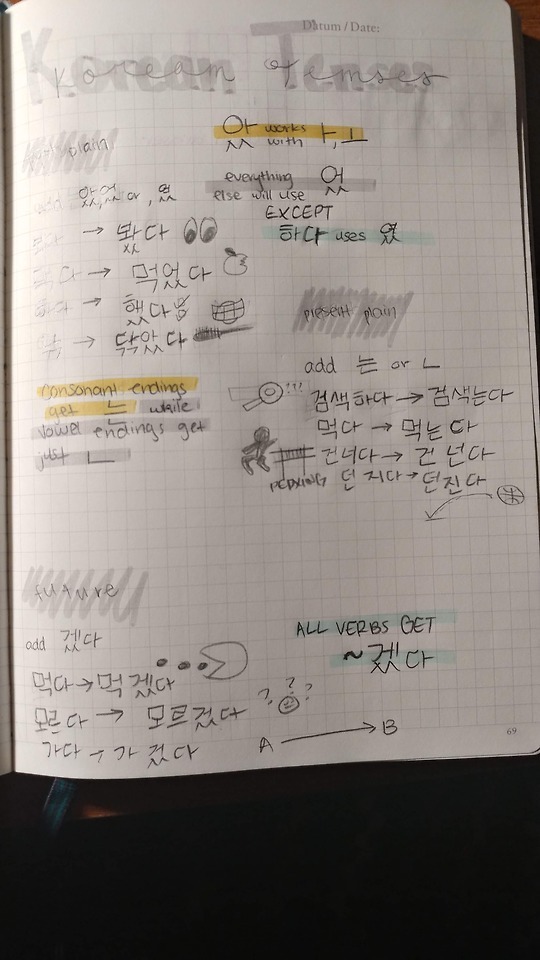 Datum / Date:
Korean Tenses
plain
았 works
with ㅏ,ㅗ
add 았,었 or , 였
everything 었
else will use
EXCEPT
하다 uses 였
→ 봤다
다 → 먹었다
하다 → 했다
→ 닦았다
present plain
add 는 or ㄴ
consonant endings
get 는 while
vowel endings get
just ㄴ
!!!
검색하다 → 검색는다
먹다 → 먹는다
건너다 → 건넌다
던지다 → 던진다
future
add 겠다
ALL VERBS GET
~겠다
먹다 → 먹겠다
모른다 → 모르겠다
? ? ?
가다 → 가겠다
A → B
69